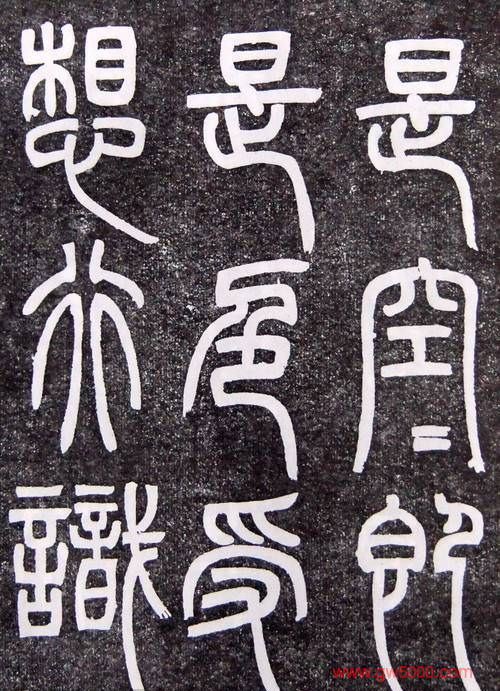 是空〻即
是色受
想行識
www.gw5000.com